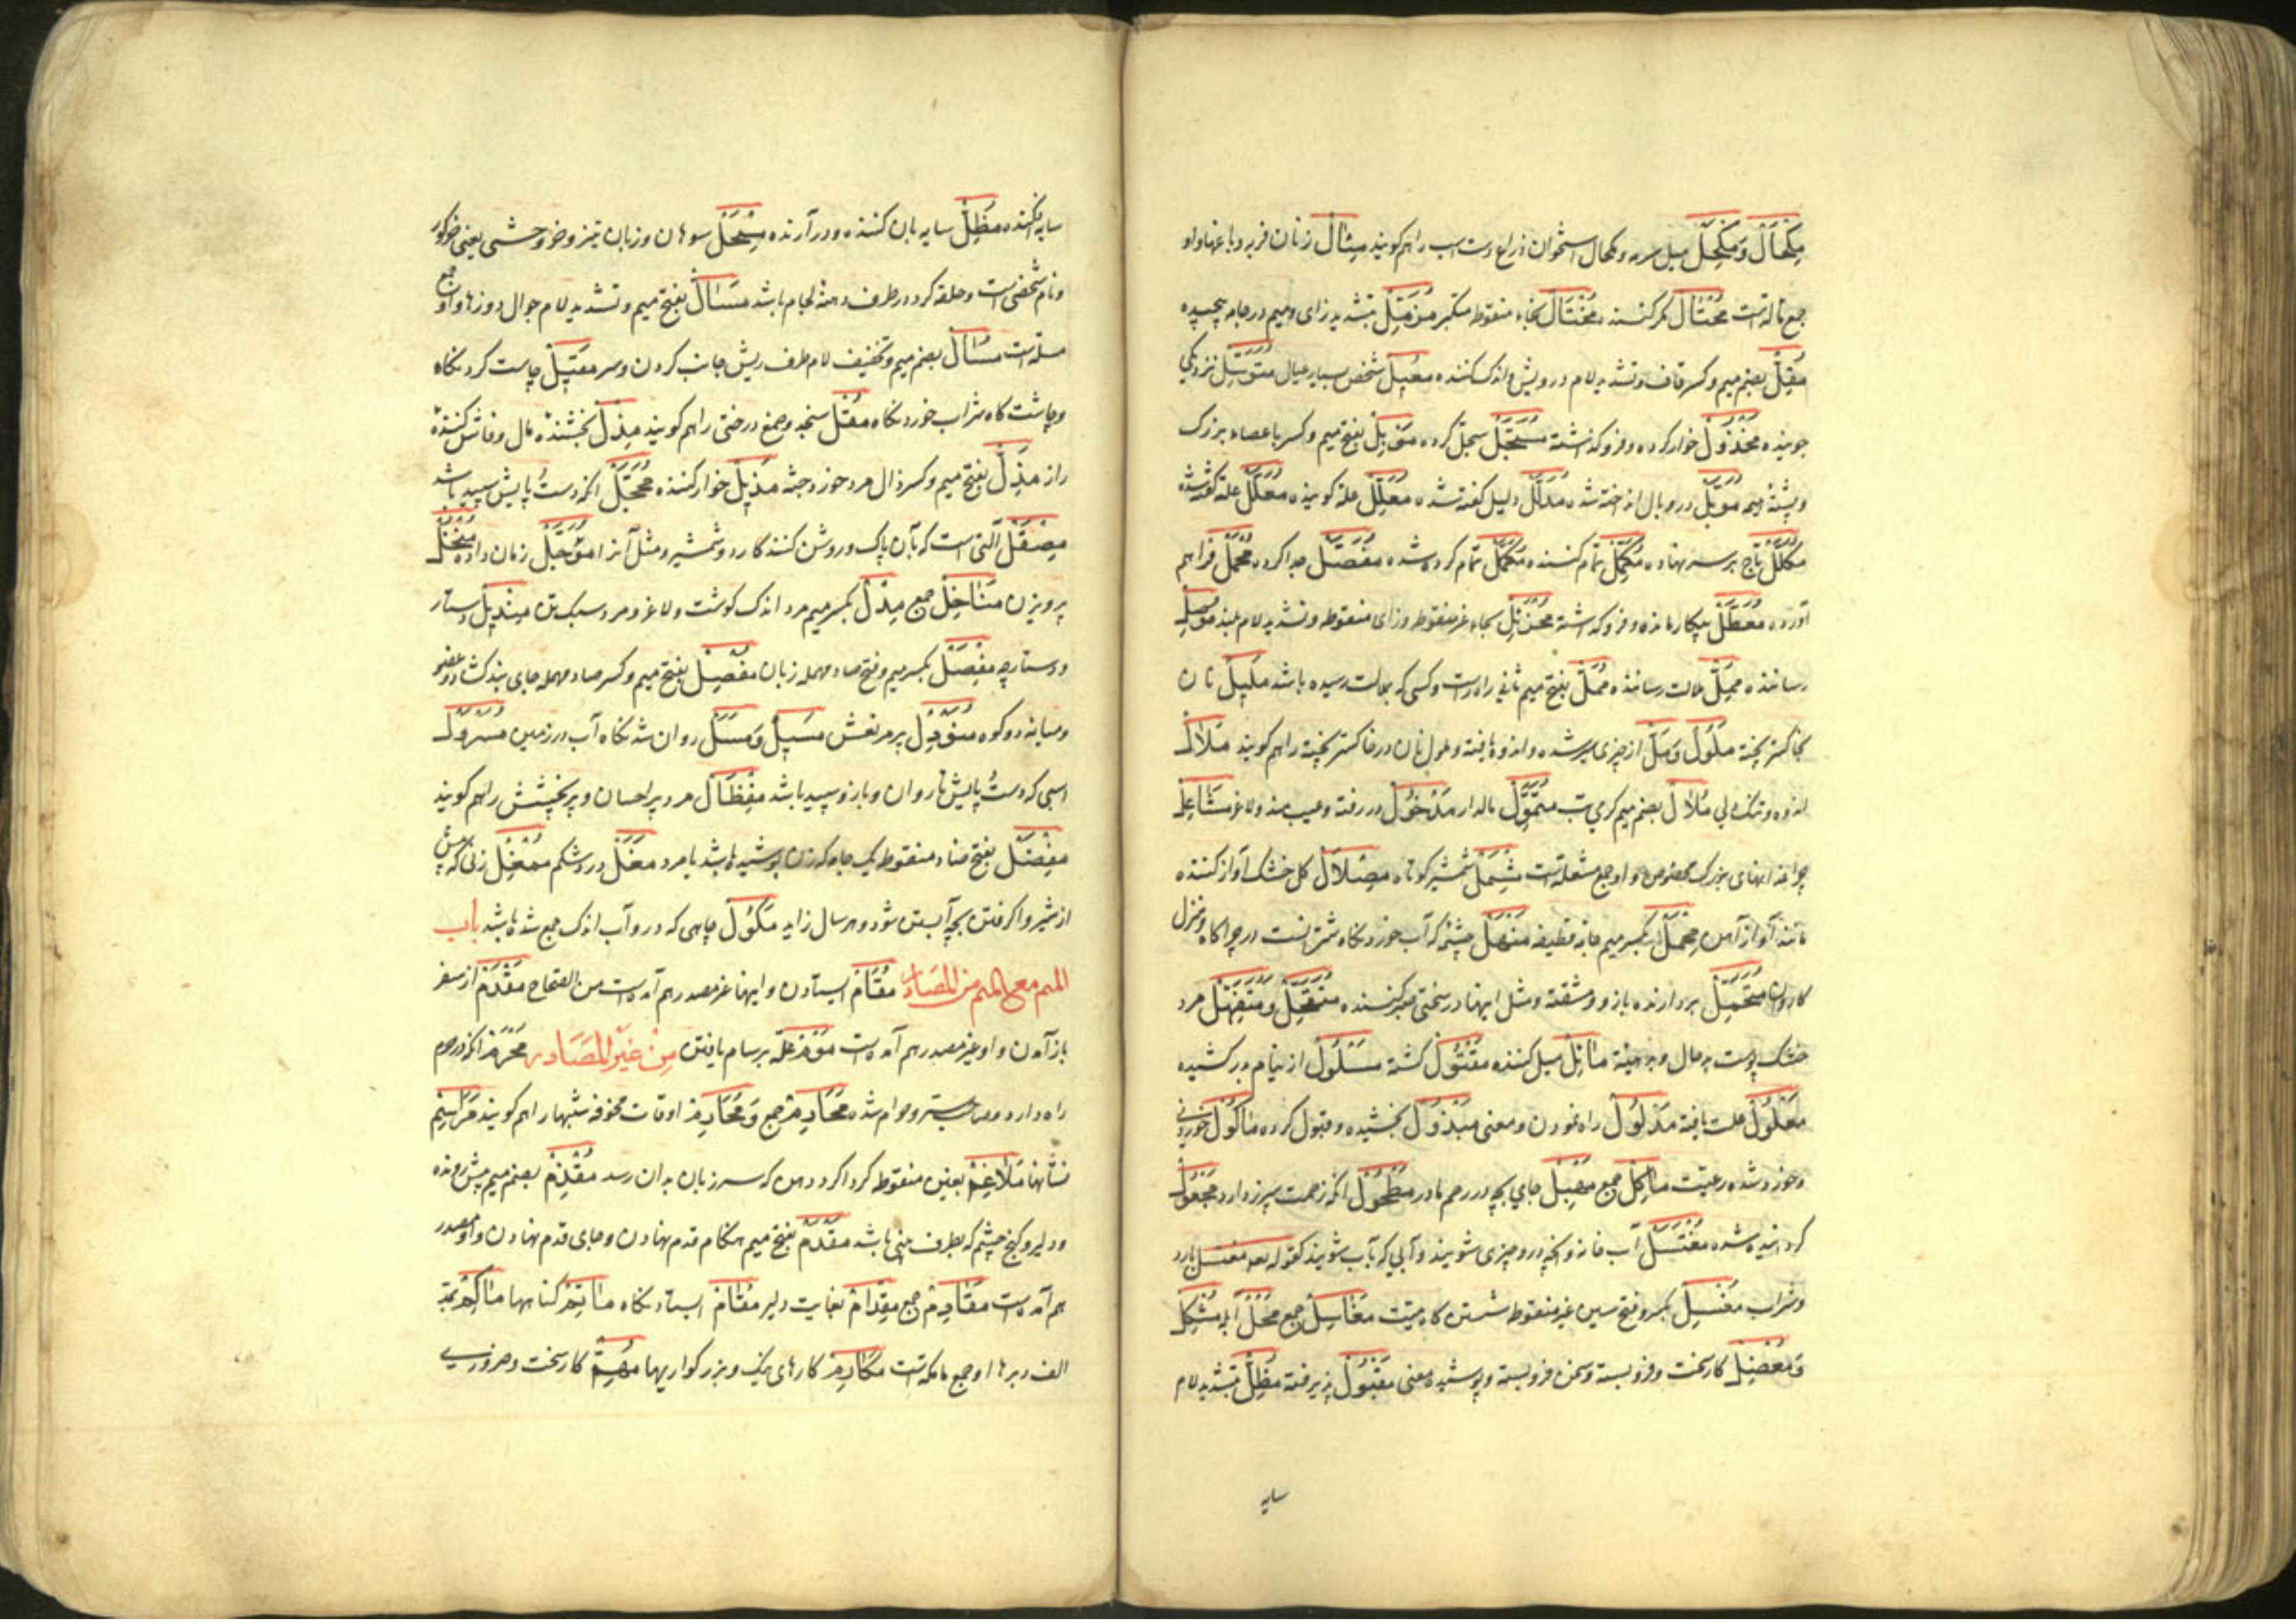 مِکْحَالْ وَمِکْحَلْ میل سرمه و مکحال استخوان ذراع دست اسب را هم کویند مِثَالْ زنان فربه و با
جمع است مُحْتَالْ مکر کننده مُخْتَالْ بخاء منقوطه متکبر مُزَّمِّلْ بتشدید زای و میم در جامه پیچیده
مُقِلّْ بضم میم و کسر قاف و تشدید لام درویش و اندک کننده مُعِیلْ شخص بسیار عیال مُتَوَسِّلْ نزدیکی
جوینده مَخْذُولْ خوار کرده و فرو کذاشته مُسَجَّلْ سجل کرده بفتح میم و کسر با عصاء بزرک
و پشتهٔ هیمه در وبال انداخته شده مُدَلَّلْ دلیل کفته شده مُعَلِّلْ علة کوینده مُعَلَّلْ علة کفته شده
مُکَلَّلْ تاج بر سر نهاده مُکَمِّلْ تمام کننده مُکَمَّلْ تمام کرده شده مُفَصَّلْ جدا کرده مُجْمَلْ فراهم
آورده مُعَطَّلْ بیکار مانده و فرو کذاشته بحاء غیر منقوطه و زای منقوطه و تشدید لام بلند
رسانده مُمِلّْ ملالت رساننده مُمَلّْ بفتح میم ثانی راه راست و کسی که ملالت رسیده باشد مَلِیلْ نان
بخاکستر پخته مَلُولْ وَمَلّْ از چیزی سیر شده و اندوه یافته و ملول نان در خاکستر پخته را هم کویند مَلَالْ
اندوه و تنک دلی مُلَالْ بضم میم کرمی تب مُتَمَوِّلْ مالدار مَدْخُولْ در رفته و عیب مند و لاغر مَشَاعِلْ
چراغدانهای بزرک مخصوص و او جمع مشعله است مِشْمَلْ شمشیر کوتاه مِصْلَالْ کل خشک آواز کننده
مانند آواز آهن مِخْمَلْ بکسر میم جامه قطیفه مَنْهَلْ چشمه که آب خورد نکاه شترانست در چراکاه و منزل
کاروان مُتَحَمِّلْ بردارنده بار و مشقته و مثل اینها در سختی صبر کننده مرد
خشک پوست بد حال و بد هیئة مَائِلْ میل کننده مَقْتُولْ کشته مَسْلُولْ از نیام بر کشیده
مَعْلُولْ علت یافته مَدْلُولْ راه نمودن و معنی مَبْذُولْ بخشیده و قبول کرده مَأْکُولْ خوردنی
و خورده شده رعیت مَآکِلْ جمع مَهْبِلْ جای بچه در رحم مادر مَطْحُولْ انکه زحمت سپرز دارد مَجْعُولْ
کردانیده شده مُغْتَسَلْ آب خانه و انچه درو چیزی شویند و آبی که بآب شویند کقوله مغتسل بارد
وشراب مَغْسِلْ بکسر و فتح سین غیر منقوطه شستن کاه میت مَغَاسِلْ جمع مُشْکِلْ
وَمُعْضِلْ کار سخت و فرو بسته و سخن فرو بسته و پوشیده معنی مَقْبُولْ پذیرفته مُظِلّْ بتشدید لام
سایه
سایه مُظَلِّلْ سایه بان کننده و در آرنده مِسْحَلْ سوهان و زبان تیز و خر وحشی یعنی خرکور
و نام شخصی است و حلقه کرد در طرف دهنهٔ لجام باشد مَسَالّْ بفتح میم و تشدید لام جوال دوزها و او جمع
مسله است مُسَالْ بضم میم و تخفیف لام طرف ریش جانب کردن و سر مَقِیلْ چاشت کرد نکاه
و چاشت کاه شراب خورد نکاه و صمغ درختی را هم کویند مِذِلْ بخشندهٔ مال و فاش کنندهٔ
راز مَذِلْ بفتح میم و کسر ذال مرد خورد جثه مُذِیلْ خوار کننده مُحَجَّلْ انکه دست پایش سپید باشد
مِصْقَلْ آلتی است که بآن پاک و روشن کنند کارد و شمشیر و مثل آنرا مُؤَجَّلْ زمان داده مُنْخُلْ
پرویزن مَنَاخِلْ جمع بکسر میم مرد اندک کوشت و لاغر و مرد سبک تن مِنْدِیلْ دستار
و دستارچه مِفْصَلْ بکسر میم و فتح صاد مهمله زبان مَفْصِلْ بفتح میم و کسر صاد مهمله جای بند کشاد و عضو
و میانه دو کوه پر مرنعش مَسِیلْ وَمَسَلْ روان شد نکاه آب در زمین مُسَرْوَلْ
اسبی که دست پایش تا ران و بازو سپید باشد مِفْضَالْ مرد پر احسان و پر بخشش را هم کویند
مِفْضَلْ بفتح ضاد منقوطه یک جامه که زن پوشیده باشد یا مرد مَغَلْ درد شکم مُمْغِلْ زنی که پیش
از شیر وا کرفتن بچه آبستن شود و هر سال زاید مَکُولْ چاهی که درو آب اندک جمع شده باشد باب
المیم مع المیم من المصادر مُقَامْ ایستادن و اینها غیر مصدر هم آمده است من الصحاح مَقْدَمْ از سفر
باز آمدن و او غیر مصدر هم آمده است علة برسام یافتن مِنْ غَیْرِ المَصَادِر مَحْرَمْ انکه در حرم
راه دارد و حرام شده مَحَارِمْ جمع وَمَحَارِمْ اوقات مخوفه شبها را هم کویند مَرَاسِمْ
نشانها مَلَاغِمْ بغین منقوطه کرداکرد دهن که سر زبان بدان رسد مُقْدِمْ بضم میم پیش رونده
و دلیر و کنج چشم که بطرف بینی باشد مَقْدَمْ بفتح میم هنکام قدم نهادن و جای قدم نهادن و او مصدر
هم آمده است مَقَادِمْ جمع مِقْدَامْ بغایت دلیر مَقَامْ ایستاد نکاه مَآثِمْ کناهها مَآکِمْ بمد
الف دبرها او جمع ماکمه است مَکَارِمْ کارهای نیک و بزرکواریها مُهِمّْ کار سخت و ضروری